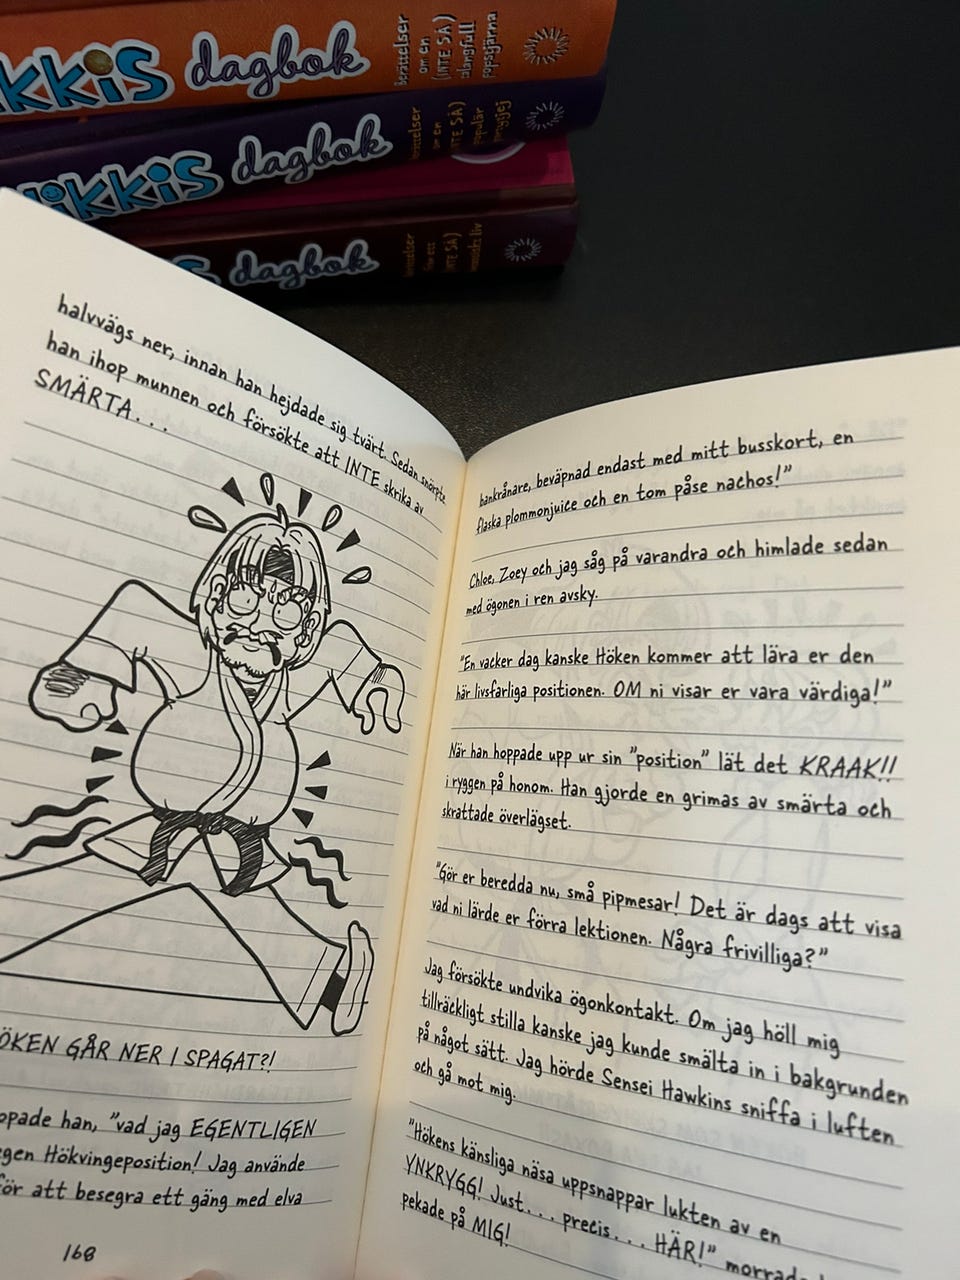 dagbok
Berättelser
om en
(INTE SÅ)
talangfull
popstjärna
dagbok
om en
populär
dagbok
halvvägs ner, innan han hejdade sig tvärt. Sedan snörpte
han ihop munnen och försökte att INTE skrika av
SMÄRTA. . .
GÅR NER I SPAGAT?!
han, "vad jag EGENTLIGEN
Hökvingeposition! Jag använde
för att besegra ett gäng med elva
168
bankrånare, beväpnad endast med mitt busskort, en
flaska plommonjuice och en tom påse nachos!"
Chloe, Zoey och jag såg på varandra och himlade sedan
med ögonen i ren avsky.
"En vacker dag kanske Höken kommer att lära er den
här livsfarliga positionen. OM ni visar er vara värdiga!"
När han hoppade upp ur sin "position" lät det KRAAK!!
i ryggen på honom. Han gjorde en grimas av smärta och
skrattade överlägset.
"Gör er beredda nu, små pipmesar! Det är dags att visa
vad ni lärde er förra lektionen. Några frivilliga?"
Jag försökte undvika ögonkontakt. Om jag höll mig
tillräckligt stilla kanske jag kunde smälta in i bakgrunden
på något sätt. Jag hörde Sensei Hawkins sniffa i luften
och gå mot mig.
"Hökens känsliga näsa uppsnappar lukten av en
YNKRYGG! Just. . . precis. . . HÄR!"
pekade på MIG!